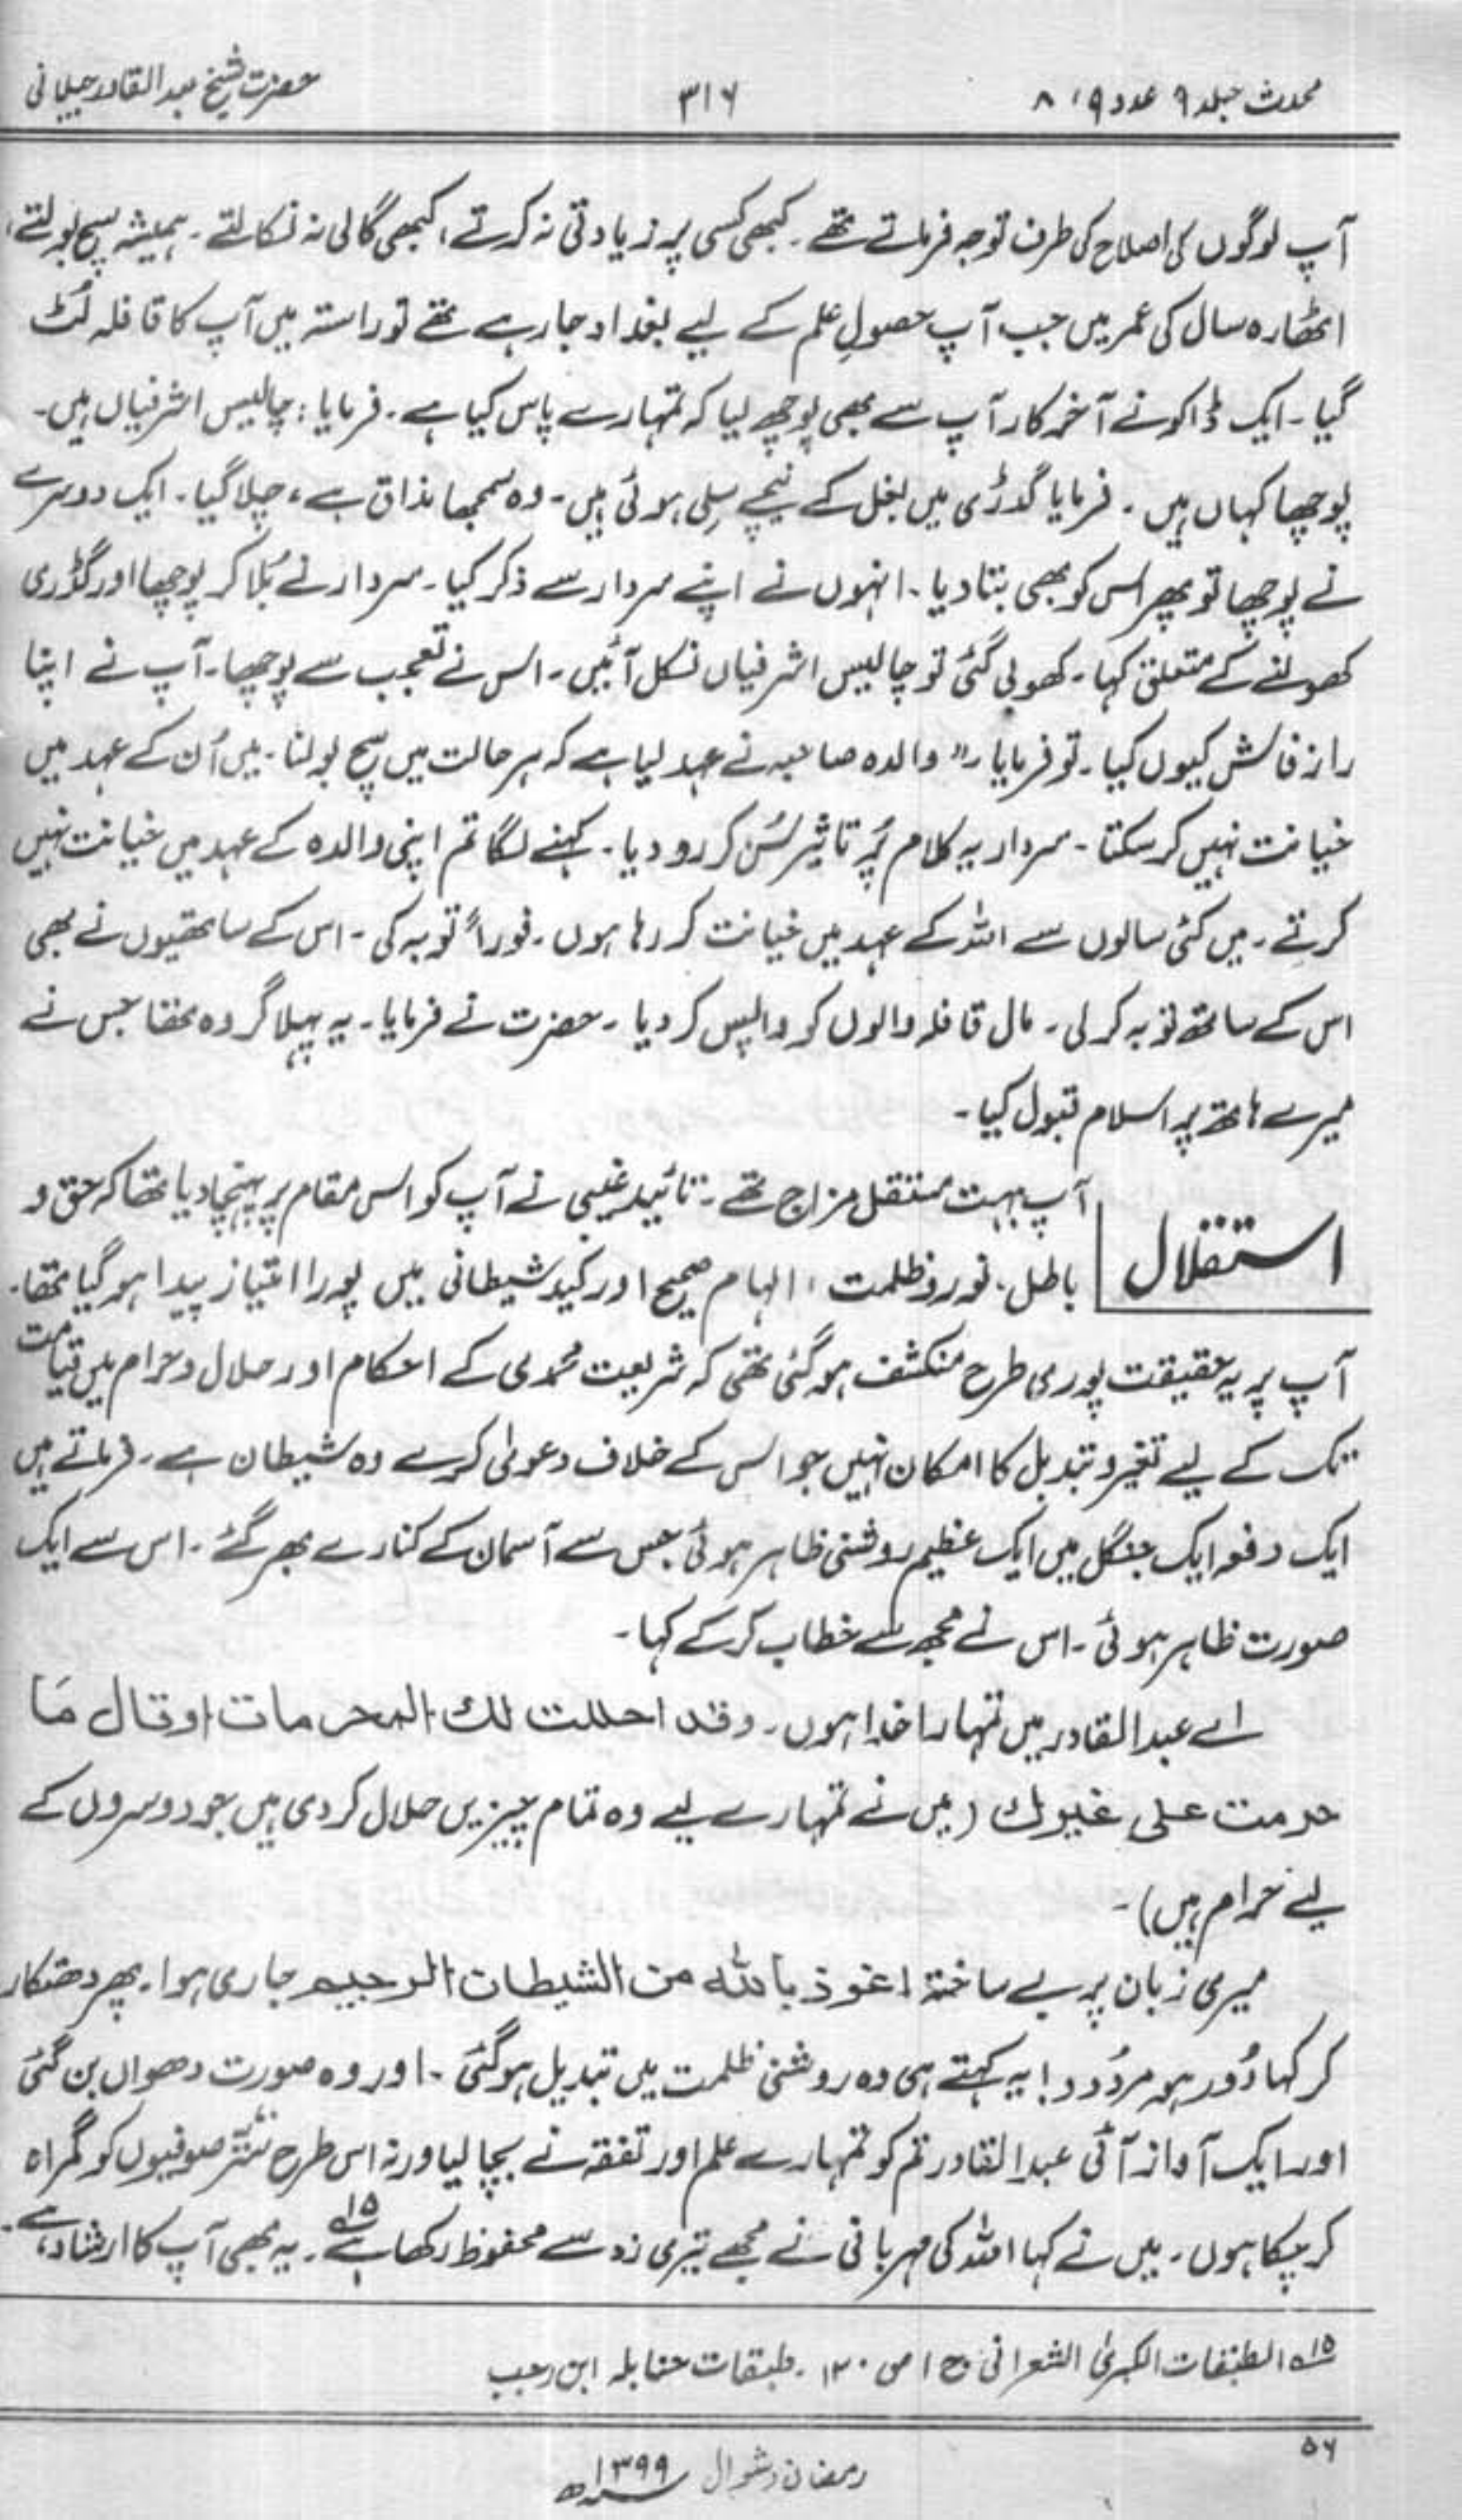 محدث جلد ۹ عدد ۹،۸
۳۱۶
حضرت شیخ عبدالقادر جیلانی
آپ لوگوں کی اصلاح کی طرف توجہ فرماتے تھے۔ کبھی کسی پہ زیادتی نہ کرتے، کبھی گالی نہ نکالتے۔ ہمیشہ سچ بولتے،
اٹھارہ سال کی عمر میں جب آپ حصولِ علم کے لیے بغداد جا رہے تھے تو راستہ میں آپ کا قافلہ لُٹ
گیا۔ ایک ڈاکو نے آخر کار آپ سے بھی پوچھ لیا کہ تمہارے پاس کیا ہے۔ فرمایا: چالیس اشرفیاں ہیں۔
پوچھا کہاں ہیں۔ فرمایا گدڑی میں بغل کے نیچے سِلی ہوئی ہیں۔ وہ سمجھا مذاق ہے، چلا گیا۔ ایک دوسرے
نے پوچھا تو پھر اس کو بھی بتا دیا۔ انہوں نے اپنے سردار سے ذکر کیا۔ سردار نے بُلا کر پوچھا اور گڈری
کھولنے کے متعلق کہا۔ کھولی گئی تو چالیس اشرفیاں نکل آئیں۔ اس نے تعجب سے پوچھا۔ آپ نے اپنا
راز فاش کیوں کیا۔ تو فرمایا ر" والدہ صاحبہ نے عہد لیا ہے کہ ہر حالت میں سچ بولنا۔ میں اُن کے عہد میں
خیانت نہیں کر سکتا۔ سردار یہ کلام پُر تاثیر سُن کر رو دیا۔ کہنے لگا تم اپنی والدہ کے عہد میں خیانت نہیں
کرتے۔ میں کئی سالوں سے اللہ کے عہد میں خیانت کر رہا ہوں۔ فوراً توبہ کی۔ اس کے ساتھیوں نے بھی
اس کے ساتھ توبہ کر لی۔ مال قافلہ والوں کو واپس کر دیا۔ حضرت نے فرمایا۔ یہ پہلا گروہ تھا جس نے
میرے ہاتھ پر اسلام قبول کیا۔
استقلال
آپ بہت مستقل مزاج تھے۔ تائید غیبی نے آپ کو اس مقام پر پہنچا دیا تھا کہ حق و
باطل۔ نور و ظلمت، الہام صحیح اور کید شیطانی میں پورا امتیاز پیدا ہو گیا تھا۔
آپ پر یہ حقیقت پوری طرح منکشف ہو گئی تھی کہ شریعت محمدی کے احکام اور حلال و حرام میں قیامت
تک کے لیے تغیر و تبدیل کا امکان نہیں جو اس کے خلاف دعوٰی کرے وہ شیطان ہے۔ فرماتے ہیں
ایک دفعہ ایک جنگل میں ایک عظیم روشنی ظاہر ہوئی جس سے آسمان کے کنارے بھر گئے۔ اس سے ایک
صورت ظاہر ہوئی۔ اس نے مجھ سے خطاب کر کے کہا۔
اے عبدالقادر میں تمہارا خدا ہوں۔ وقد احللت لك المحرمات اوقال مَا
حرمت على غيرك (میں نے تمہارے لیے وہ تمام چیزیں حلال کر دی ہیں جو دوسروں کے
لیے حرام ہیں)۔
میری زبان پر بے ساختہ اعوذ بالله من الشيطان الرجيم جاری ہوا۔ پھر دھتکار
کر کہا دُور ہو مردُود! یہ کہتے ہی وہ روشنی ظلمت میں تبدیل ہو گئی۔ اور وہ صورت دھواں بن گئی
اور ایک آواز آئی عبدالقادر تم کو تمہارے علم اور تفقہ نے بچا لیا ورنہ اس طرح ستّر صوفیوں کو گمراہ
کر چکا ہوں۔ میں نے کہا اللہ کی مہربانی نے مجھے تیری زد سے محفوظ رکھا ہے ۱۵۔ یہ بھی آپ کا ارشاد ہے۔
۱۵ الطبقات الکبریٰ الشعرانی ج ۱ ص ۱۲۰۔ طبقات حنابلہ ابن رجب
۵۶
رمضان و شوال ۱۳۹۹ھ